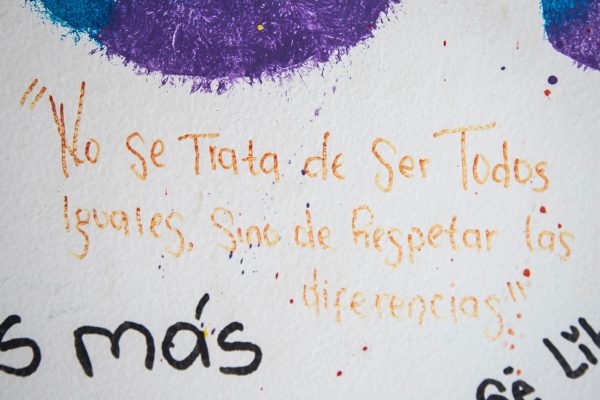 "No se Trata de Ser Todos
Iguales, Sino de Respetar las
diferencias"
s más
sé Lib